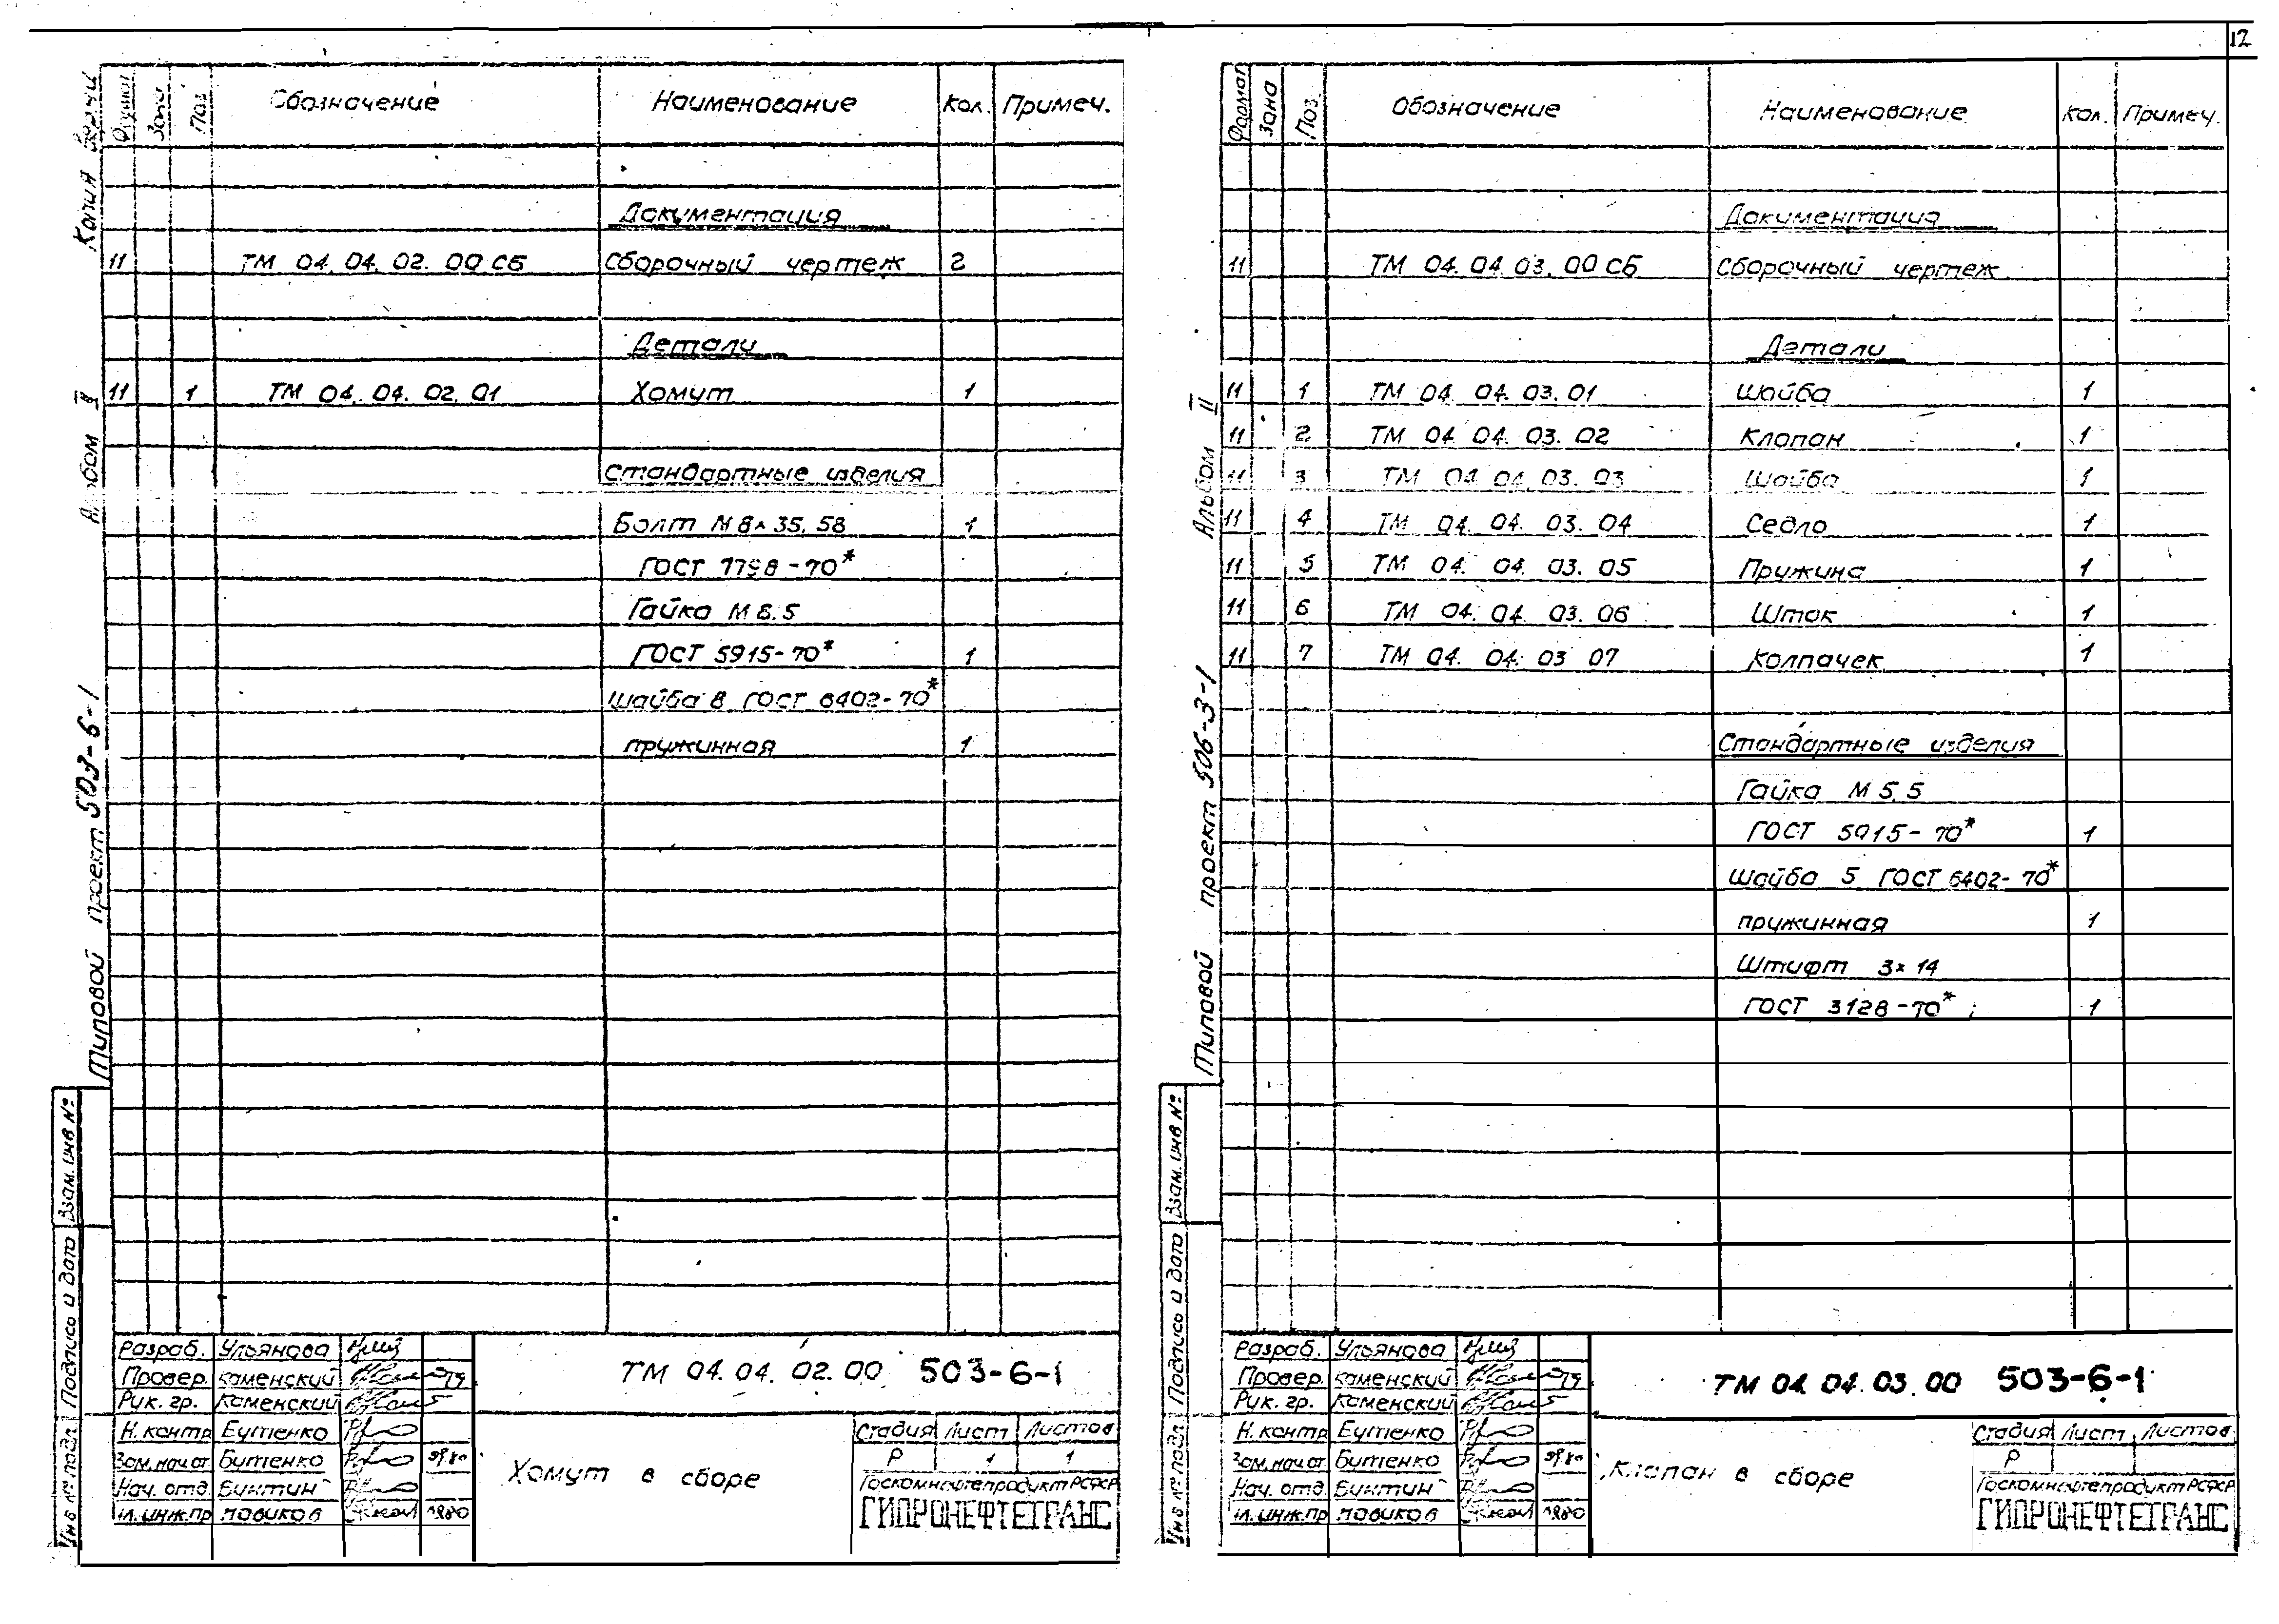 12
Копия верна
Альбом II
Типовой проект 503-6-1
Взам. инв №
Подпись и дата
Инв № подл
Формат Зона Поз. Обозначение Наименование Кол. Примеч.
Документация
11 ТМ 04. 04. 02. 00 СБ Сборочный чертеж 2
Детали
11 1 ТМ 04. 04. 02. 01 Хомут 1
Стандартные изделия
Болт М 8×35. 58 1
ГОСТ 7798-70*
Гайка М 8. 5
ГОСТ 5915-70* 1
Шайба 8 ГОСТ 6402-70*
пружинная 1
Разраб. Ульянова
Провер. Каменский
Рук. гр. Каменский
Н. контр Бутенко
Зам. нач от Бутенко
Нач. отд. Бунтин
Гл. инж. пр Новиков 1980
ТМ 04. 04. 02. 00 503-6-1
Хомут в сборе
Стадия Лист Листов
Р 1 1
Госкомнефтепродукт РСФСР
ГИПРОНЕФТЕТРАНС
Альбом II
Типовой проект 506-3-1
Взам. инв №
Подпись и дата
Инв № подл
Формат Зона Поз. Обозначение Наименование Кол. Примеч.
Документация
11 ТМ 04. 04. 03. 00 СБ Сборочный чертеж
Детали
11 1 ТМ 04. 04. 03. 01 Шайба 1
11 2 ТМ 04 04. 03. 02 Клапан 1
11 3 ТМ 04 04. 03. 03 Шайба 1
11 4 ТМ 04. 04. 03. 04 Седло 1
11 5 ТМ 04. 04. 03. 05 Пружина 1
11 6 ТМ 04. 04. 03. 06 Шток 1
11 7 ТМ 04. 04. 03 07 Колпачек 1
Стандартные изделия
Гайка М 5. 5
ГОСТ 5915-70* 1
Шайба 5 ГОСТ 6402-70*
пружинная 1
Штифт 3×14
ГОСТ 3128-70* 1
Разраб. Ульянова
Провер. Каменский
Рук. гр. Каменский
Н. контр Бутенко
Зам. нач от Бутенко
Нач. отд. Бунтин
Гл. инж. пр Новиков 1980
ТМ 04 04. 03. 00 503-6-1
Клапан в сборе
Стадия Лист Листов
Р
Госкомнефтепродукт РСФСР
ГИПРОНЕФТЕТРАНС